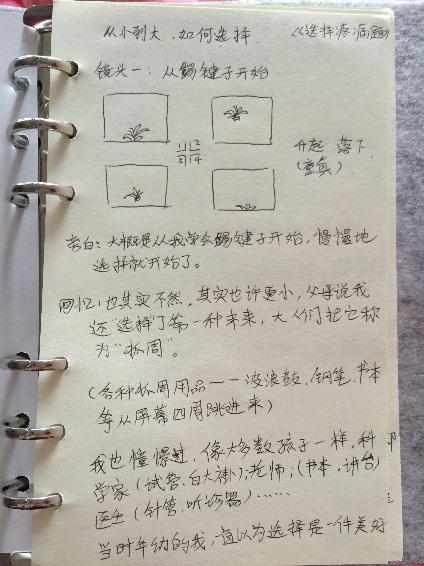 从小到大.如何选择 (选择疼痛题)
镜头一：从踢毽子开始
1 2
3 4
升起 落下
(童真)
旁白：大概是从我学会踢毽子开始，慢慢地
选择就开始了。
回忆：也其实不然，其实也许更小，父母说我
还"选择"了第一种未来，大人们把它称
为"抓周"。
(各种抓周用品——波浪鼓、钢笔、书本
等从屏幕四周跳进来)
我也憧憬过，像大多数孩子一样，科
学家(试管、白大褂)；老师；(书本，讲台)
医生(针管，听诊器)……
当时年幼的我，直以为选择是一件美好